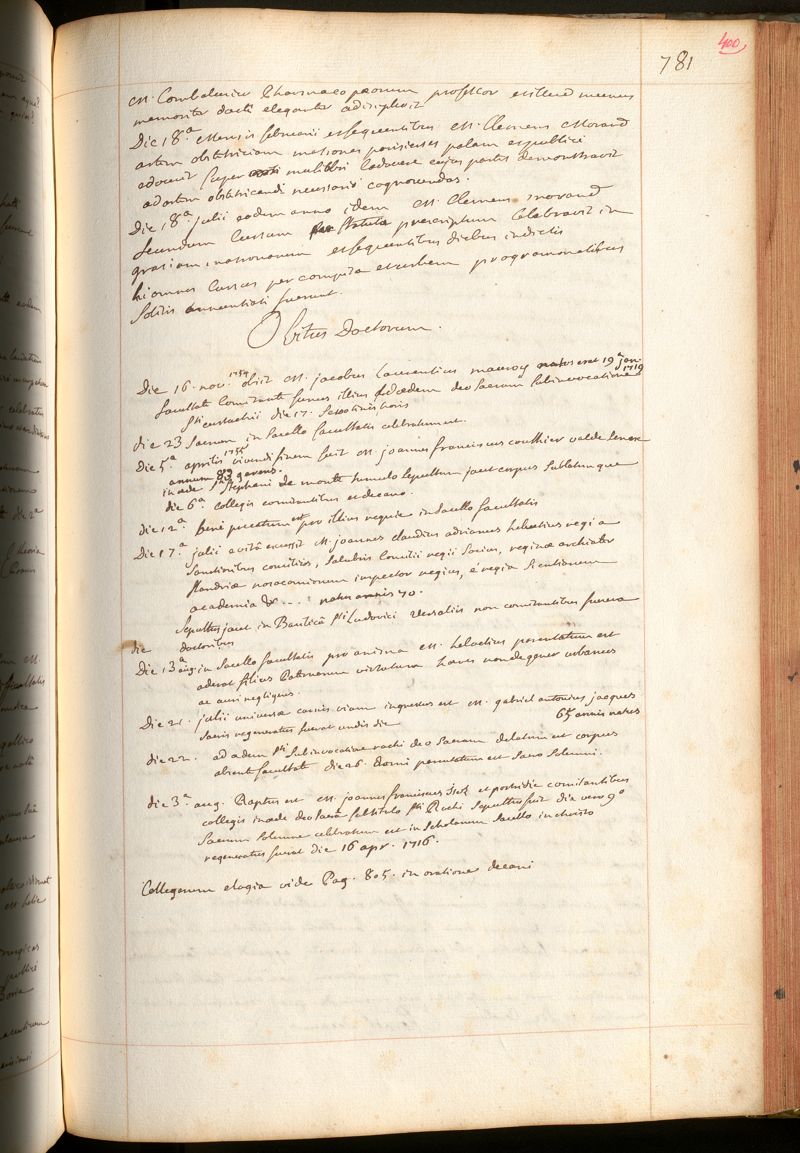 781
400
M. Combalusier Pharmacopoeorum professor et illud munus
memoriter docte eleganter adimplevit
Die 18.a Mensis februarii et sequentibus M. Clemens Morand
artem obstetriciam matronas parisienses palam et publice
adocuit super muliebri Cadavere cujus partes demonstravit
ad artem obstetricandi necessario cognoscendas.
Die 18.a julii eodem anno idem M. Clemens morand
secundum Cursum per statuta praescriptum Celebravit in
gratiam matronarum et sequentibus diebus indictis
hi omnes Cursus per compita et urbem programmatibus
solitis annuntiati fuerunt.
Obitus Doctorum.
Die 16. nov. 1754 obiit M. jacobus Laurentius natus erat 19.a jan. 1719
facultate Comitante funus illius in aedem deo Sacram sub invocatione
Sti Eustachii die 17.
die 23 Sacrum in Sacello facultatis celebratum est.
Die 5.a aprilis 1755 vivendi finem fecit M. joannes franciscus couthier valde senex
annum 83 gerens.
in aede Sti Stephani de monte humulo sepultum jacet corpus sublatum que
die 6.a collegis comitantibus et decano.
die 12.a bene precatum est pro illius requie in Sacello facultatis
Die 17.a julii a vitâ excessit M. joannes claudius adrianus helvetius regi a
Sanctioribus consiliis, Salubris Consilii regii Socius, reginae archiater
flandriae nosocomiorum inspector regius, e regia Scientiarum
academia &c... natus annis 70.
Sepultus jacet in Basilicâ Sti Ludovici Versaliis non comitantibus funera
die doctoribus
Die 13.a aug. in Sacello facultatis pro anima M. helvetius parentatum est
aderat filius Paternarum virtutum haeres non degener urbanus
ac auri negligens.
Die 21. julii universae carnis viam ingressus est M. gabriel antonius jacques
Sacris regeneratus fuerat undis die 65 annis natus
die 22. ad aedem Sti Sub invocatione rochi deo Sacram delatum est corpus
absente facultate die 26. domi parentatum est Sacro Solemni.
die 3.a aug. Raptus est M. joannes franciscus et postridie comitantibus
collegis in aede deo Sacrâ sub titulo Sti Rochi Sepultus fuit die vero 9.o
Sacrum Solemne celebratum est in Scholarum Sacello in christo
regeneratus fuerat die 16 apr. 1716.
Collegarum elogia vide Pag. 805. in oratione decani